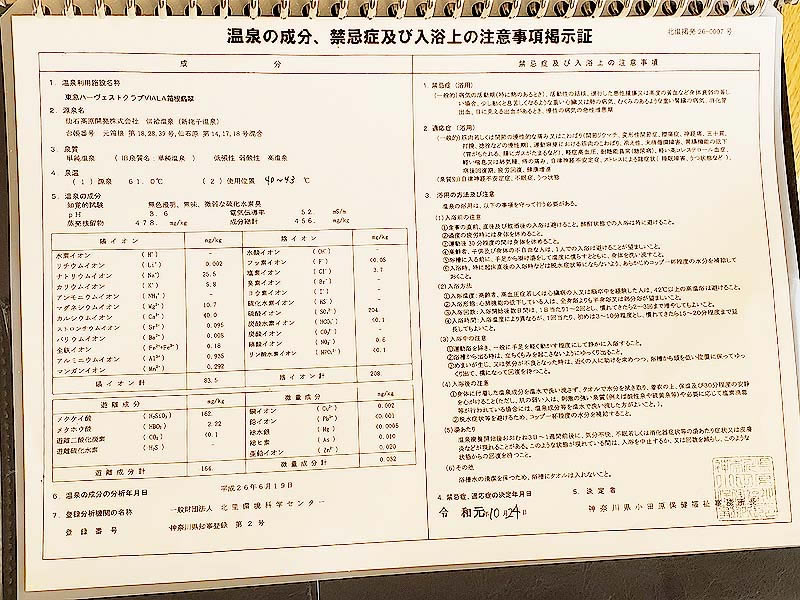 北環掲第 26-0007 号
温泉の成分、禁忌症及び入浴上の注意事項掲示証
成 分
1. 温泉利用施設名称
東急ハーヴェストクラブVIALA箱根翡翠
2. 源泉名
仙石高原開発株式会社 供給温泉(姥子温泉)
台帳番号 元箱根 第18,28,39号,仙石原 第14,17,18号混合
3. 泉質
単純温泉 (旧泉質名:単純温泉) 低張性 弱酸性 高温泉
4. 泉温
(1) 源泉 61.0℃ (2) 使用位置 40~43 ℃
5. 温泉の成分
知覚的試験 無色澄明、無味、微弱な硫化水素臭
pH 3.6 電気伝導率 52. mS/m
蒸発残留物 478. mg/kg 成分総計 456. mg/kg
陽イオン mg/kg 陰イオン mg/kg
水素イオン (H⁺) 水酸イオン (OH⁻)
リチウムイオン (Li⁺) 0.002 フッ素イオン (F⁻) <0.05
ナトリウムイオン (Na⁺) 25.5 塩素イオン (Cl⁻) 3.7
カリウムイオン (K⁺) 5.8 臭素イオン (Br⁻)
アンモニウムイオン (NH₄⁺) ヨウ素イオン (I⁻)
マグネシウムイオン (Mg²⁺) 10.7 硫化水素イオン (HS⁻)
カルシウムイオン (Ca²⁺) 40.0 硫酸イオン (SO₄²⁻) 204.
ストロンチウムイオン (Sr²⁺) 0.095 炭酸水素イオン (HCO₃⁻) <0.1
バリウムイオン (Ba²⁺) 0.098 炭酸イオン (CO₃²⁻)
全鉄イオン (Fe²⁺+Fe³⁺) 0.18 硝酸イオン (NO₃⁻) 0.6
アルミニウムイオン (Al³⁺) 0.925 リン酸水素イオン (HPO₄²⁻) <0.1
マンガンイオン (Mn²⁺) 0.292
陽イオン計 83.5 陰イオン計 208.
遊離成分 mg/kg 微量成分 mg/kg
メタケイ酸 (H₂SiO₃) 162. 銅イオン (Cu²⁺) 0.002
メタホウ酸 (HBO₂) 2.22 鉛イオン (Pb²⁺) <0.001
遊離二酸化炭素 (CO₂) <0.1 総水銀 (Hg) <0.0005
遊離硫化水素 (H₂S) 総ヒ素 (As) 0.010
亜鉛イオン (Zn²⁺) 0.020
遊離成分計 164. 微量成分計 0.032
6. 温泉の成分の分析年月日 平成26年6月19日
7. 登録分析機関の名称 一般財団法人 北里環境科学センター
登録番号 神奈川県知事登録 第2号
禁忌症及び入浴上の注意事項
1. 禁忌症(浴用)
(一般的)病気の活動期(特に熱のあるとき)、活動性の結核、進行した悪性腫瘍又は高度の貧血など身体衰弱の著し
い場合、少し動くと息苦しくなるような重い心臓又は肺の病気、むくみのあるような重い腎臓の病気、消化管出
血、目に見える出血があるとき、慢性の病気の急性増悪期
2. 適応症(浴用)
(一般的)筋肉若しくは関節の慢性的な痛み又はこわばり(関節リウマチ、変形性関節症、腰痛症、神経痛、五十肩、
打撲、捻挫などの慢性期)、運動麻痺における筋肉のこわばり、冷え性、末梢循環障害、胃腸機能の低下
(胃がもたれる、腸にガスがたまるなど)、軽症高血圧、耐糖能異常(糖尿病)、軽い高コレステロール血症、
軽い喘息又は肺気腫、痔の痛み、自律神経不安定症、ストレスによる諸症状(睡眠障害、うつ状態など)、
病後回復期、疲労回復、健康増進
(泉質別)自律神経不安定症、不眠症、うつ状態
3. 浴用の方法及び注意
温泉の浴用は、以下の事項を守って行う必要がある。
(1)入浴前の注意
①食事の直前、直後及び飲酒後の入浴は避けること。酩酊状態での入浴は特に避けること。
②過度の疲労時には身体を休めること。
③運動後30分程度の間は身体を休めること。
④高齢者、子供及び身体の不自由な人は、1人での入浴は避けることが望ましいこと。
⑤浴槽に入る前に、手足から掛け湯をして温度に慣らすとともに、身体を洗い流すこと。
⑥入浴時、特に起床直後の入浴時などは脱水症状等にならないよう、あらかじめコップ一杯程度の水分を補給して
おくこと。
(2)入浴方法
①入浴温度:高齢者、高血圧症若しくは心臓病の人又は脳卒中を経験した人は、42℃以上の高温浴は避けること。
②入浴形態:心肺機能の低下している人は、全身浴よりも半身浴又は部分浴が望ましいこと。
③入浴回数:入浴開始後数日間は、1日当たり1~2回とし、慣れてきたら2~3回まで増やしてもよいこと。
④入浴時間:入浴温度により異なるが、1回当たり、初めは3~10分程度とし、慣れてきたら15~20分程度まで延
長してもよいこと。
(3)入浴中の注意
①運動浴を除き、一般に手足を軽く動かす程度にして静かに入浴すること。
②浴槽から出る時は、立ちくらみを起こさないようにゆっくり出ること。
③めまいが生じ、又は気分が不良となった時は、近くの人に助けを求めつつ、浴槽から頭を低い位置に保ってゆっ
くり出て、横になって回復を待つこと。
(4)入浴後の注意
①身体に付着した温泉成分を温水で洗い流さず、タオルで水分を拭き取り、着衣の上、保温及び30分程度の安静
を心がけること(ただし、肌の弱い人は、刺激の強い泉質(例えば酸性泉や硫黄泉等)や必要に応じて塩素消毒
等が行われている場合には、温泉成分等を温水で洗い流した方がよいこと。)。
②脱水症状等を避けるため、コップ一杯程度の水分を補給すること。
(5)湯あたり
温泉療養開始後おおむね3日~1週間前後に、気分不快、不眠若しくは消化器症状等の湯あたり症状又は皮膚
炎などが現れることがある。このような状態が現れている間は、入浴を中止するか、又は回数を減らし、このような
状態からの回復を待つこと。
(6)その他
浴槽水の清潔を保つため、浴槽にタオルは入れないこと。
4. 禁忌症、適応症の決定年月日 5. 決定者
令和元年10月24日 神奈川県小田原保健福祉事務所長